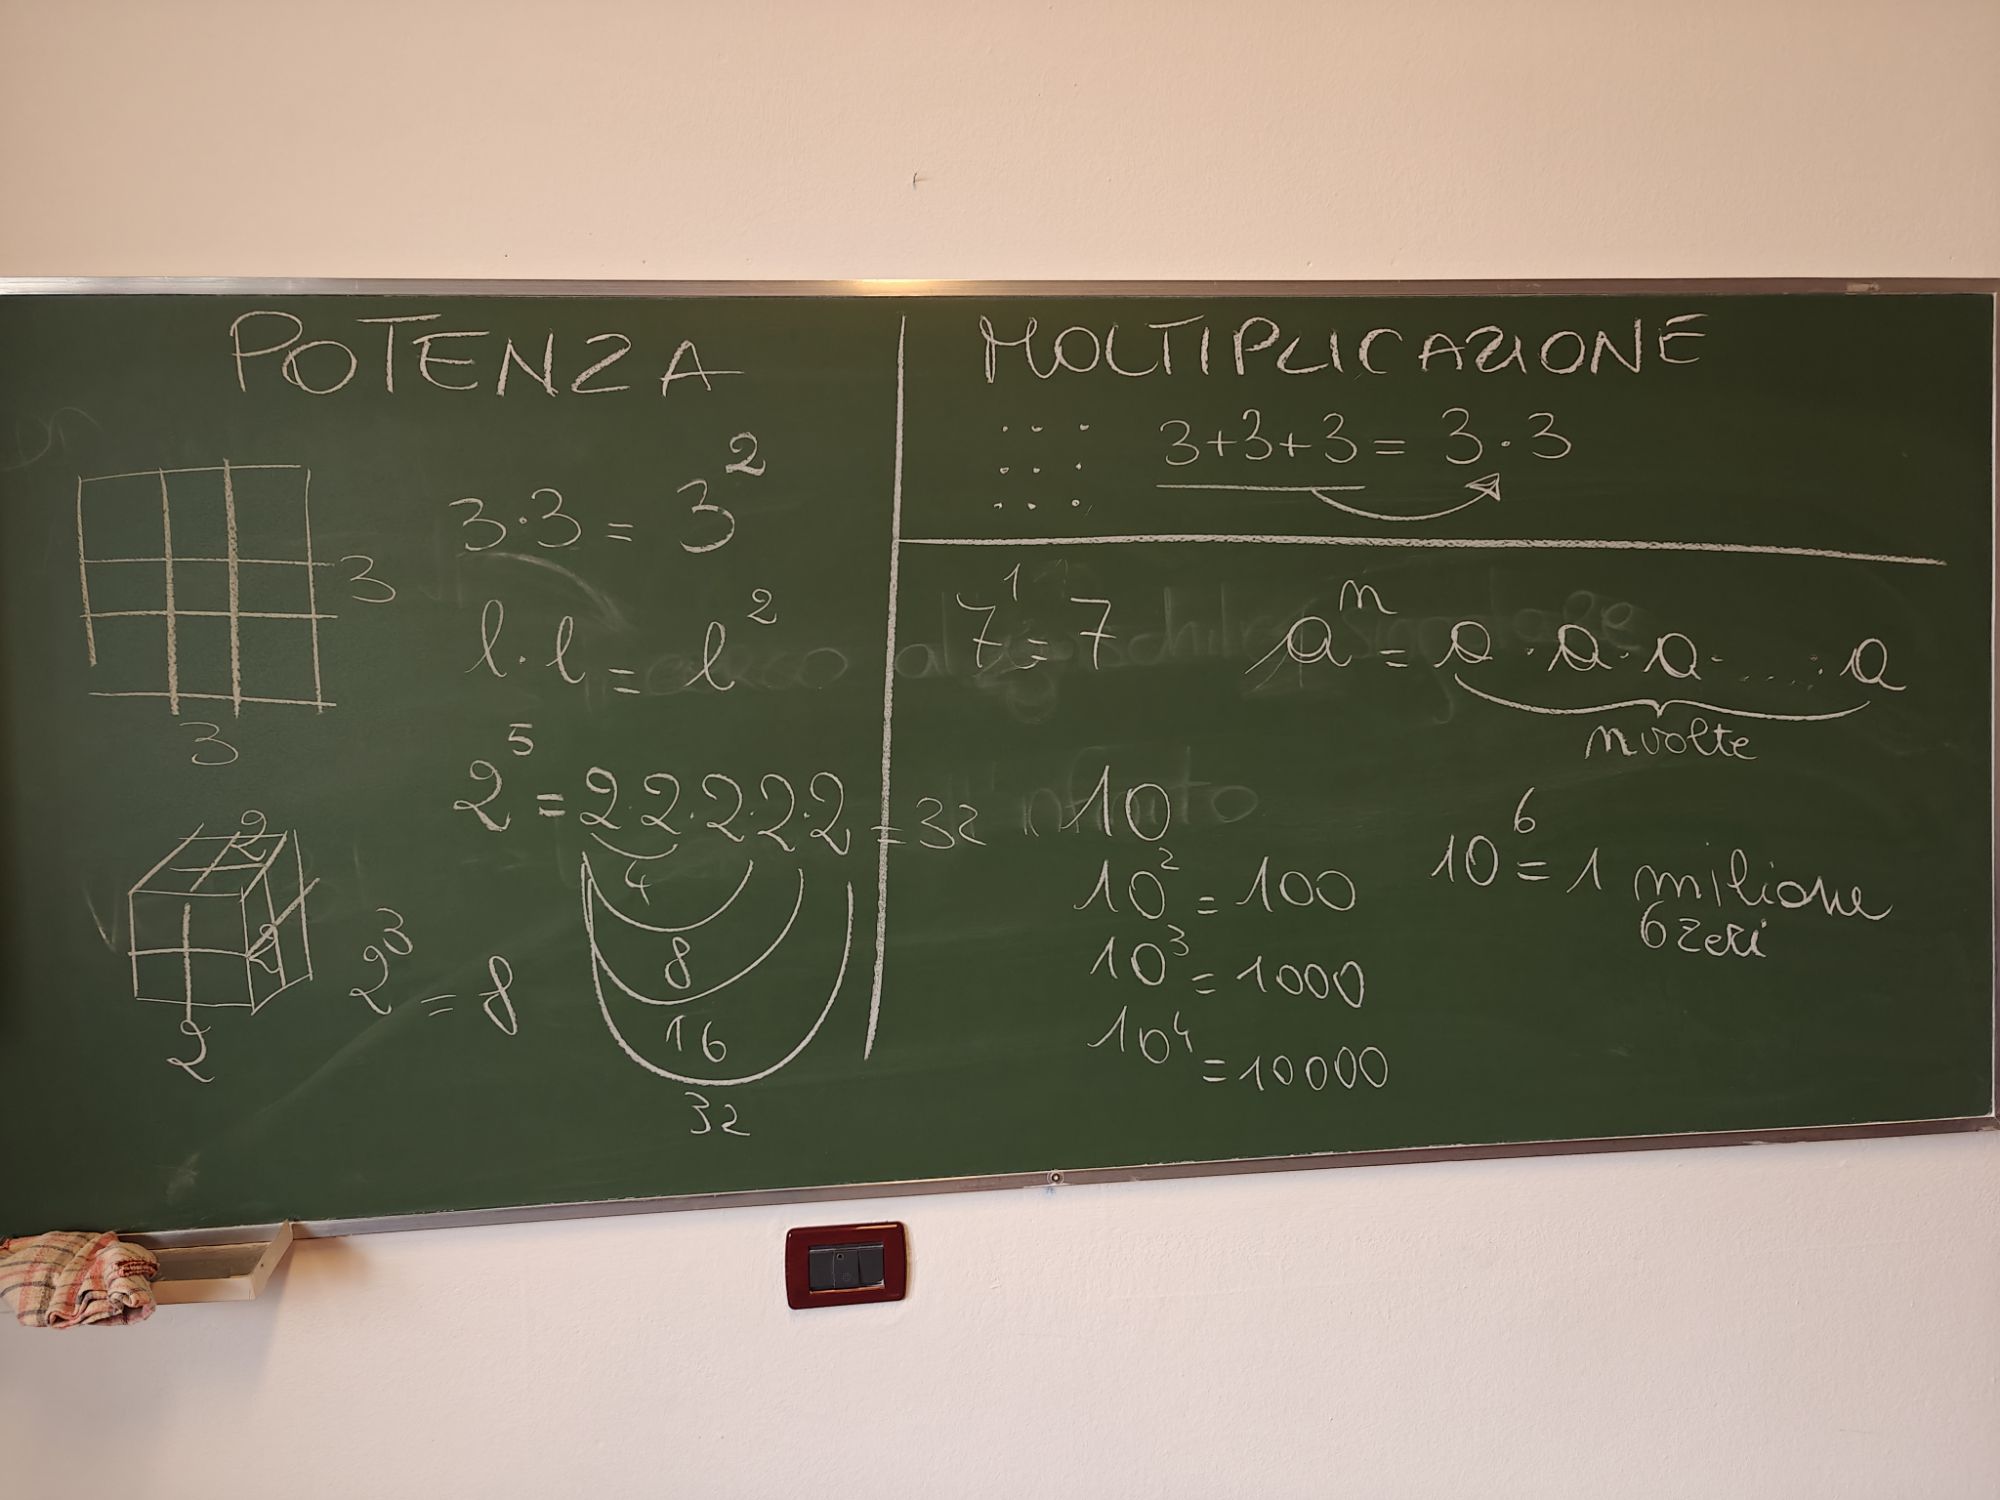 POTENZA
3
3
3·3 = 3²
l·l = l²
2⁵ = 2·2·2·2·2 = 32
4
8
16
32
2
2
2
2³ = 8
MOLTIPLICAZIONE
3+3+3 = 3·3
7¹ = 7
aⁿ = a·a·a·.....·a
n volte
10
10² = 100
10³ = 1000
10⁴ = 10000
10⁶ = 1 milione
6 zeri